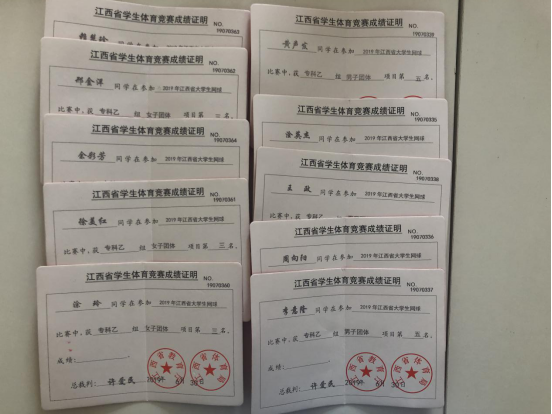 江西省学生体育竞赛成绩证明
NO.
19070363
同学在参加 2019年江西省大学生网球
江西省学生体育竞赛成绩证明
NO.
19070362
郑金萍 同学在参加 2019年江西省大学生网球
比赛中,获 专科乙 组 女子团体 项目第 三 名。
江西省学生体育竞赛成绩证明
NO.
19070364
金彩芳 同学在参加 2019年江西省大学生网球
江西省学生体育竞赛成绩证明
NO.
19070361
徐美红 同学在参加 2019年江西省大学生网球
比赛中,获 专科乙 组 女子团体 项目第 三 名。
江西省学生体育竞赛成绩证明
NO.
19070360
徐 玲 同学在参加 2019年江西省大学生网球
比赛中,获 专科乙 组 女子团体 项目第 三 名。
成绩:
总裁判: 许爱民 2019年 6月 30日
江西省教育厅
江西省体育局
江西省学生体育竞赛成绩证明
NO.
黄声发 同学在参加 2019年江西省大学生网球
比赛中,获 专科乙 组 男子团体 项目第 五 名。
江西省学生体育竞赛成绩证明
NO.
19070335
徐英杰 同学在参加 2019年江西省大学生网球
江西省学生体育竞赛成绩证明
NO.
19070338
王政 同学在参加 2019年江西省大学生网球
比赛中,获 专科乙 组 男子团体 项目第 五 名。
江西省学生体育竞赛成绩证明
NO.
19070336
周向阳 同学在参加 2019年江西省大学生网球
江西省学生体育竞赛成绩证明
NO.
19070337
同学在参加 2019年江西省大学生网球
比赛中,获 专科乙 组 男子团体 项目第 五 名。
成绩:
总裁判: 许爱民 2019年 6月 30日
江西省教育厅
江西省体育局